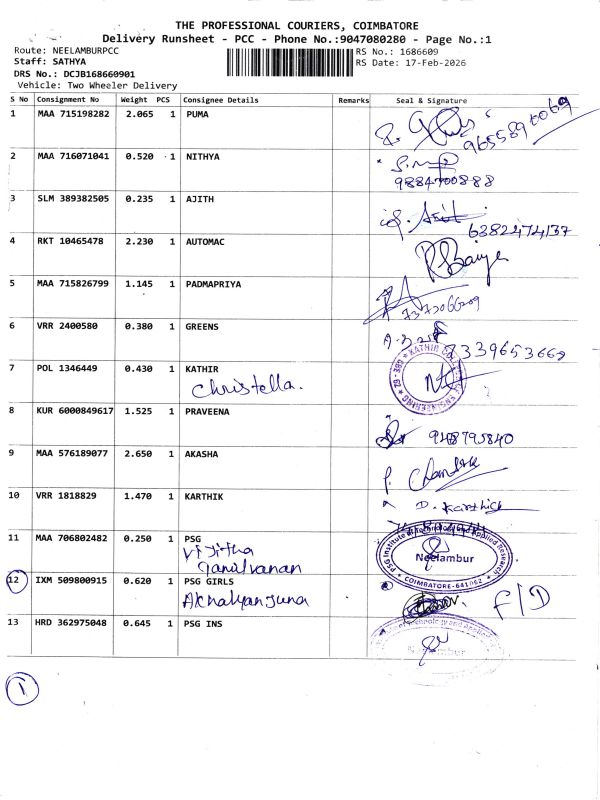 THE PROFESSIONAL COURIERS, COIMBATORE
Delivery Runsheet - PCC - Phone No.:9047080280 - Page No.:1
Route: NEELAMBURPCC RS No.: 1686609
Staff: SATHYA RS Date: 17-Feb-2026
DRS No.: DCJB168660901
Vehicle: Two Wheeler Delivery
S No Consignment No Weight PCS Consignee Details Remarks Seal & Signature
1 MAA 715198282 2.065 1 PUMA
2 MAA 716071041 0.520 1 NITHYA
9884700888
3 SLM 389382505 0.235 1 AJITH
6382474137
4 RKT 10465478 2.230 1 AUTOMAC
5 MAA 715826799 1.145 1 PADMAPRIYA
7373066209
6 VRR 2400580 0.380 1 GREENS
7339653669
7 POL 1346449 0.430 1 KATHIR
Christella.
8 KUR 6000849617 1.525 1 PRAVEENA
9 MAA 576189077 2.650 1 AKASHA
10 VRR 1818829 1.470 1 KARTHIK
D. Karthick
11 MAA 706802482 0.250 1 PSG
PSG Institute of Technology and Applied Research
Neelambur
COIMBATORE-641 062
12 IXM 509800915 0.620 1 PSG GIRLS
F/D
13 HRD 362975048 0.645 1 PSG INS
1